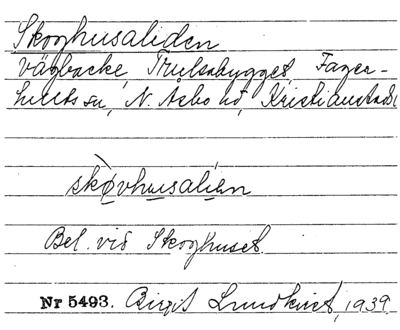 Skoghusaliden
vägbacke, Trulsabygget, Fager-
hults sn, N. Åsbo hd, Kristianstads l
skovhusalien
Bel. vid Skoghuset.
Nr 5493. Birgit Lundkvist, 1939